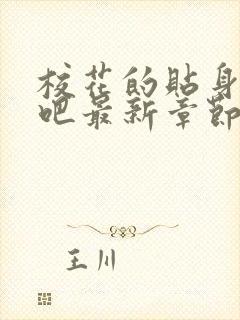 校花的贴身
吧最新章节
王川